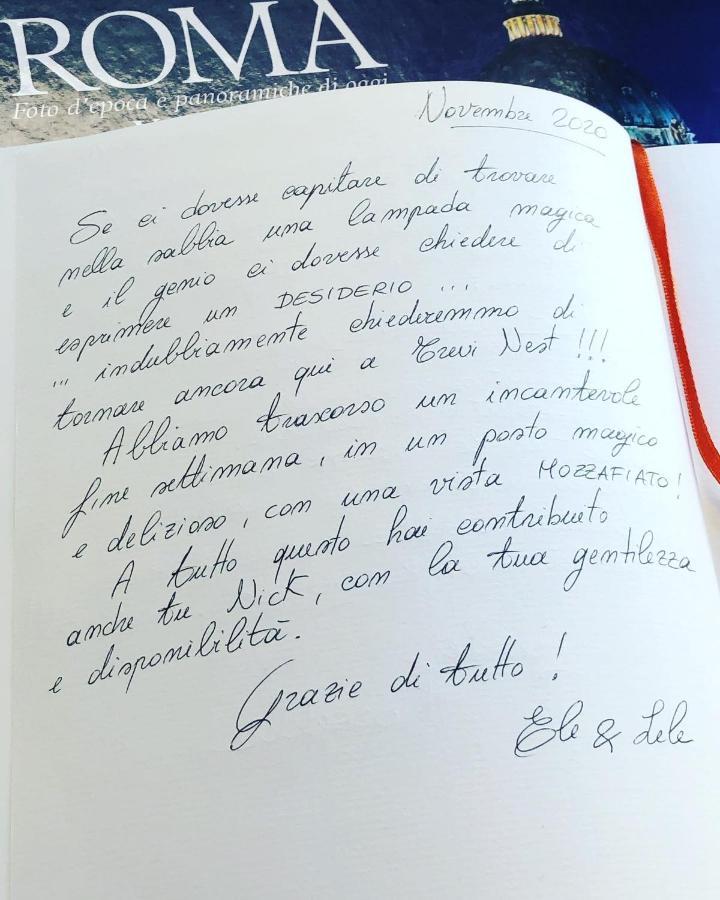 ROMA
Foto d'epoca e panoramiche di oggi
Novembre 2020
Se ci dovesse capitare di trovare
nella sabbia una lampada magica
e il genio ci dovesse chiedere di
esprimere un DESIDERIO ...
... indubbiamente chiederemmo di
tornare ancora qui a Trevi Nest !!!
Abbiamo trascorso un incantevole
fine settimana, in un posto magico
e delizioso, con una vista MOZZAFIATO!
A tutto questo hai contribuito
anche tu Nick, con la tua gentilezza
e disponibilità.
Grazie di tutto !
Ele & Lele